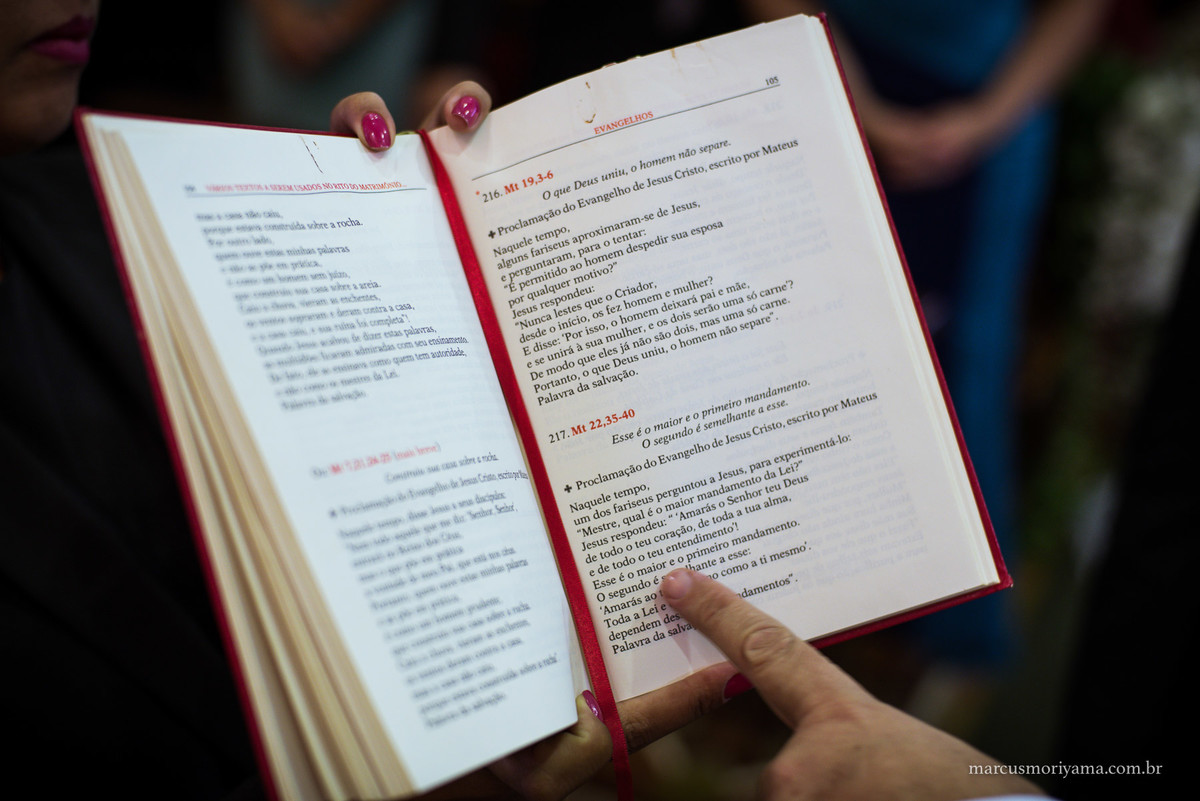 VÁRIOS TEXTOS A SEREM USADOS NO RITO DO MATRIMÔNIO...
mas a casa não caiu,
porque estava construída sobre a rocha.
Por outro lado,
quem ouve estas minhas palavras
e não as põe em prática,
é como um homem sem juízo,
que construiu sua casa sobre a areia.
Caiu a chuva, vieram as enchentes,
os ventos sopraram e deram contra a casa,
e a casa caiu, e sua ruína foi completa”!
Quando Jesus acabou de dizer estas palavras,
as multidões ficaram admiradas com seu ensinamento.
De fato, ele as ensinava como quem tem autoridade,
e não como os mestres da Lei.
Palavra da salvação.
Mt 7,21.24-25 (mais breve)
Construiu sua casa sobre a rocha.
✚ Proclamação do Evangelho de Jesus Cristo, escrito por
Naquele tempo, disse Jesus a seus discípulos:
“Nem todo aquele que me diz: ‘Senhor, Senhor’,
entrará no Reino dos Céus,
mas o que põe em prática
a vontade de meu Pai, que está nos céus.
Portanto, quem ouve estas minhas palavras
e as põe em prática,
é como um homem prudente,
que construiu sua casa sobre a rocha.
Caiu a chuva, vieram as enchentes,
os ventos deram contra a casa,
mas a casa não caiu,
porque estava construída sobre a rocha”.
Palavra da salvação.
EVANGELHOS
105
* 216. Mt 19,3-6
O que Deus uniu, o homem não separe.
✚ Proclamação do Evangelho de Jesus Cristo, escrito por Mateus
Naquele tempo,
alguns fariseus aproximaram-se de Jesus,
e perguntaram, para o tentar:
“É permitido ao homem despedir sua esposa
por qualquer motivo?”
Jesus respondeu:
“Nunca lestes que o Criador,
desde o início, os fez homem e mulher?
E disse: ‘Por isso, o homem deixará pai e mãe,
e se unirá à sua mulher, e os dois serão uma só carne’?
De modo que eles já não são dois, mas uma só carne.
Portanto, o que Deus uniu, o homem não separe”.
Palavra da salvação.
217. Mt 22,35-40
Esse é o maior e o primeiro mandamento.
O segundo é semelhante a esse.
✚ Proclamação do Evangelho de Jesus Cristo, escrito por Mateus
Naquele tempo,
um dos fariseus perguntou a Jesus, para experimentá-lo:
“Mestre, qual é o maior mandamento da Lei?”
Jesus respondeu: “ ‘Amarás o Senhor teu Deus
de todo o teu coração, de toda a tua alma,
e de todo o teu entendimento’!
Esse é o maior e o primeiro mandamento.
O segundo é semelhante a esse:
‘Amarás ao como a ti mesmo’.
Toda a Lei e
dependem mandamentos”.
Palavra da
marcusmoriyama.com.br